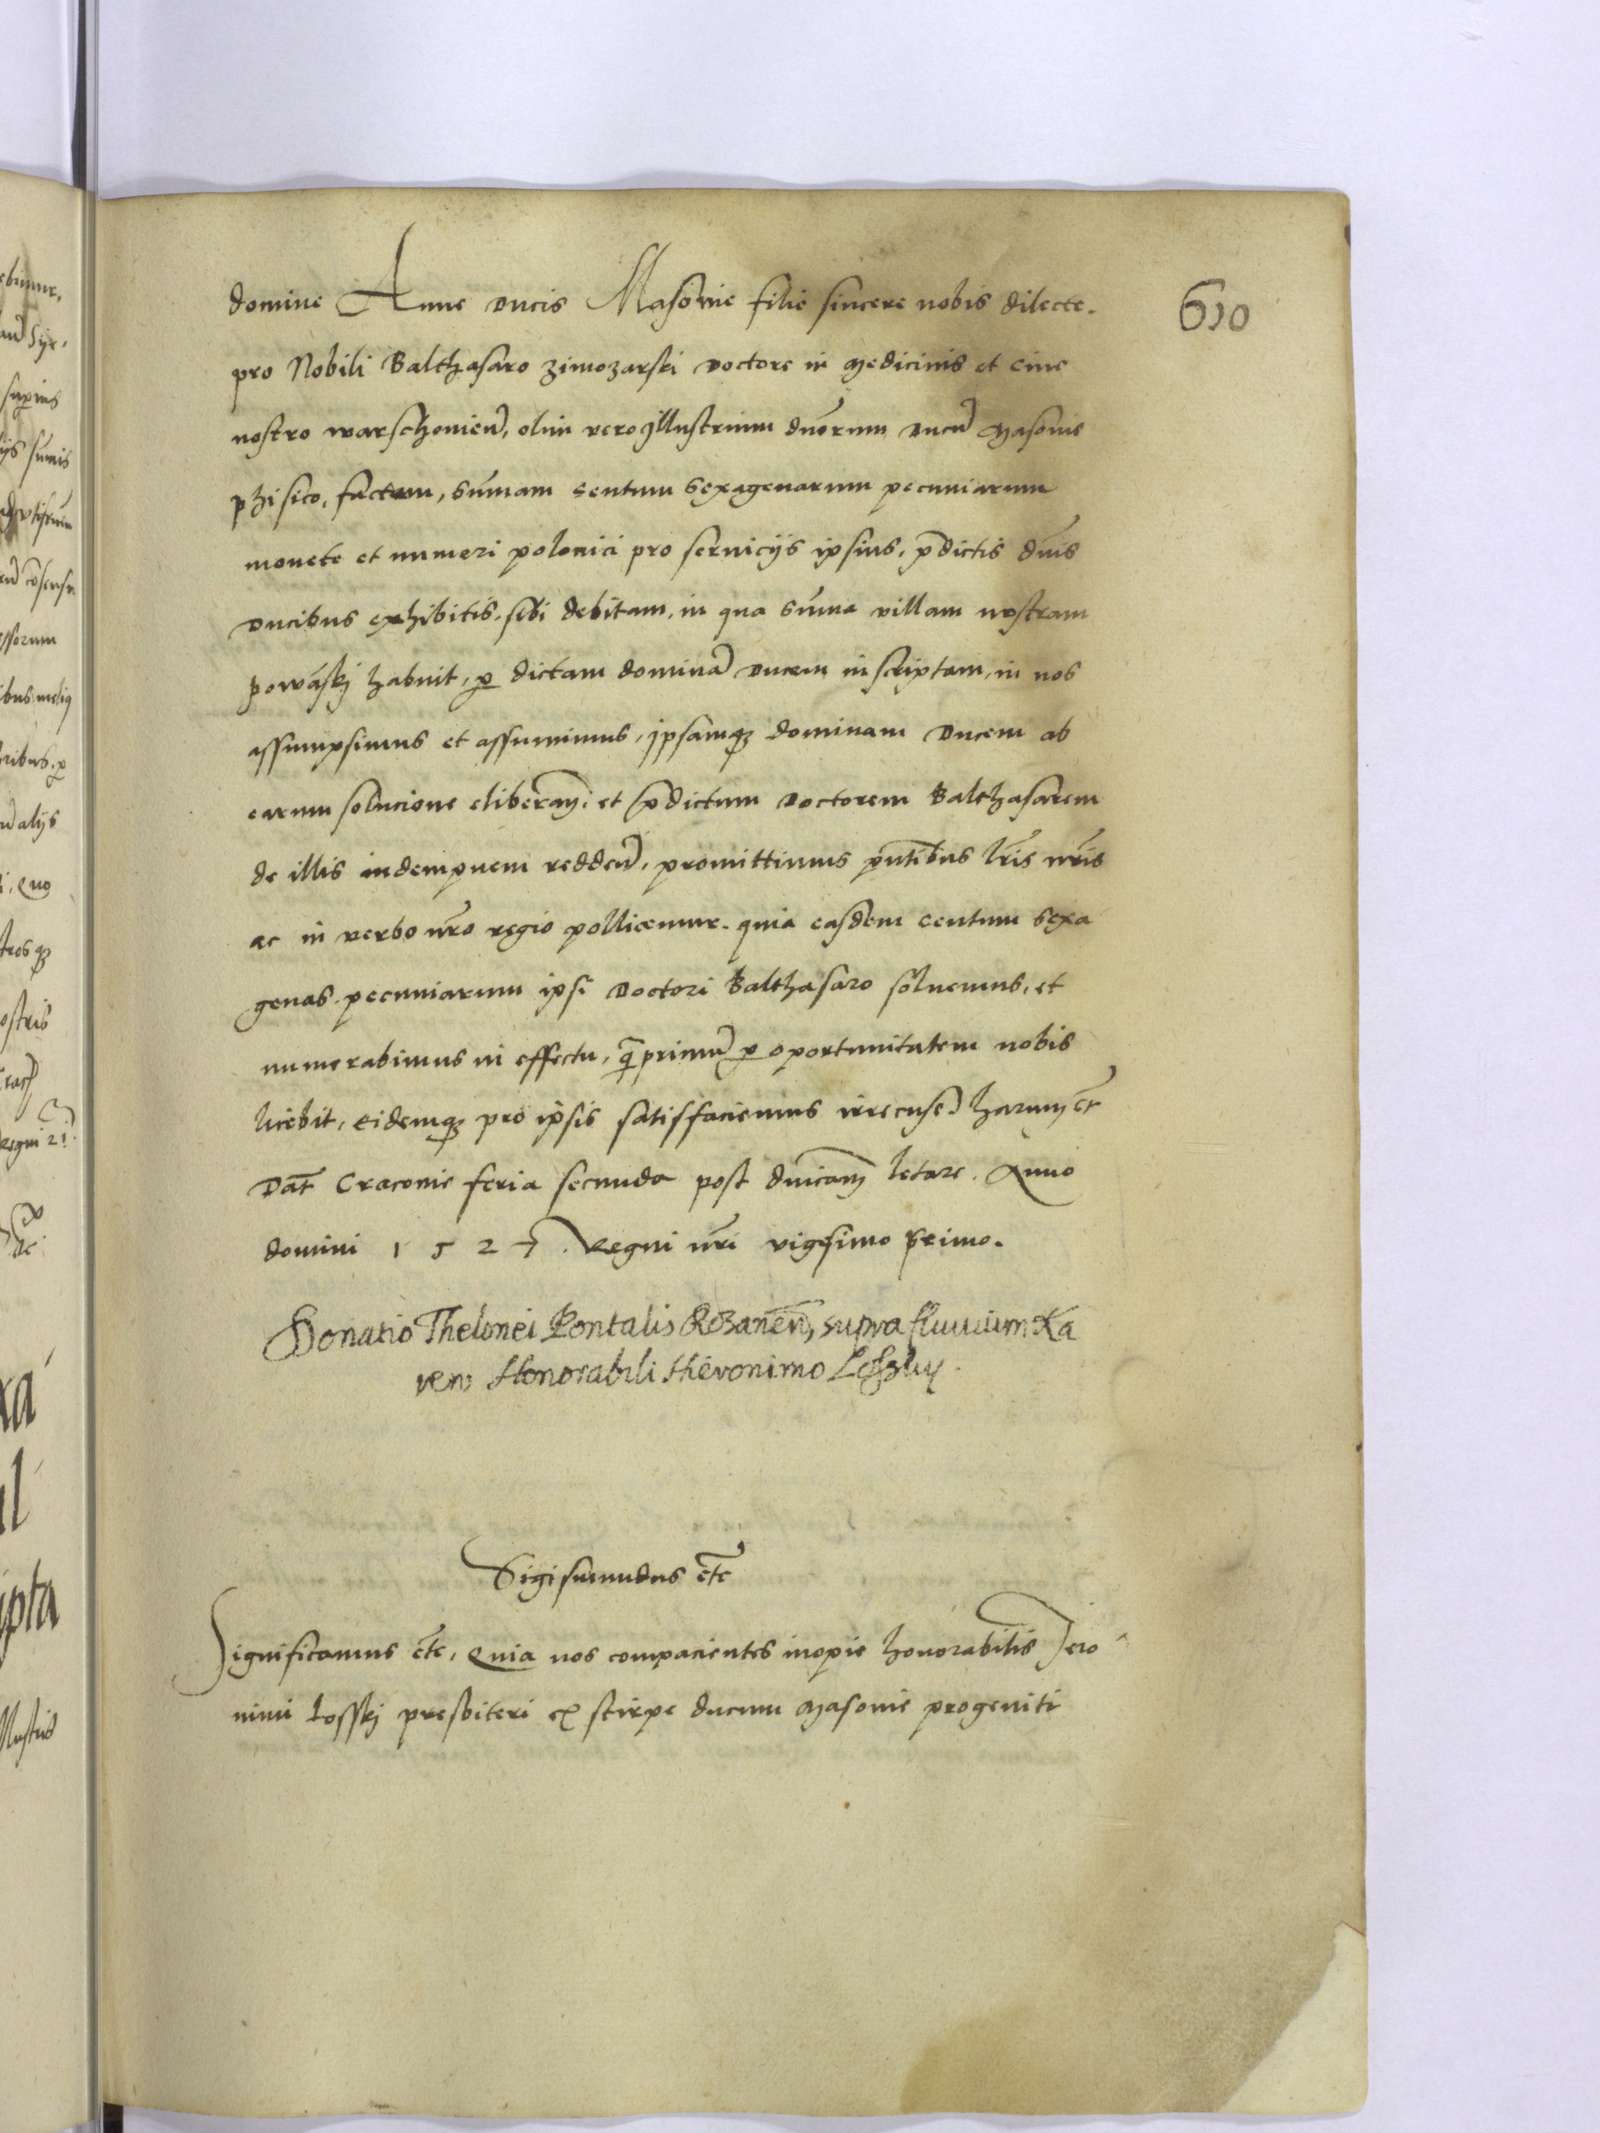 610
domine Anne Ducis Masovie filie sincere nobis dilecte.
pro Nobili Balthasaro zimozarski Doctore in Medicinis et Cive
nostro warschovien, olim vero Illustrium dnorum Ducu Masovie
phisico, factam, summam Centum sexagenarum pecuniarum
monete et numeri polonici pro serviciis ipsius, pdictis dnis
Ducibus exhibitis, sibi debitam, in qua summa villam nostram
powasky habuit, p dictam dominam Ducem inscriptam, in nos
assumpsimus et assumimus, Ipsamq dominam Ducem ab
earum solucione eliberam, et pdictum Doctorem Balthasarem
de illis indempnem redden, promittimus pntibus lris nris
ac in verbo nro regio pollicemur, quia easdem Centum sexa
genas pecuniarum ipsi Doctori Balthasaro solvemus, et
numerabimus in effectu, q primu p oportunitatem nobis
licebit, Eidemq pro ipsis satisfaciemus irrecuse, harum etc
Dat Cracovie feria secunda post dnicam letare. Anno
domini 1527. Regni nri vigesimo primo.
Donatio Thelonei Pontalis Rozanen, supra fluvium Na
rew Honorabili Hieronimo
Sigismundus etc
Significamus etc, Quia nos compacientes inopie honorabilis Jero
nimi Lossky presbiteri ex stirpe ducum Masovie progeniti